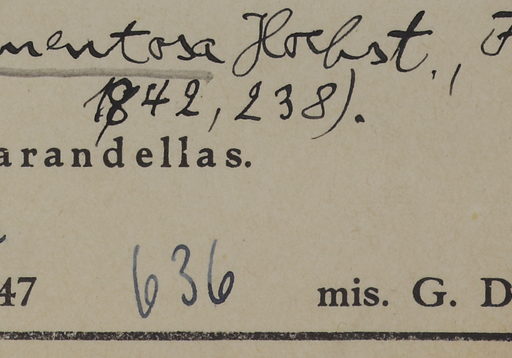 mentosa Hochst., F
1842, 238).
arandellas.
47 636 mis. G. D